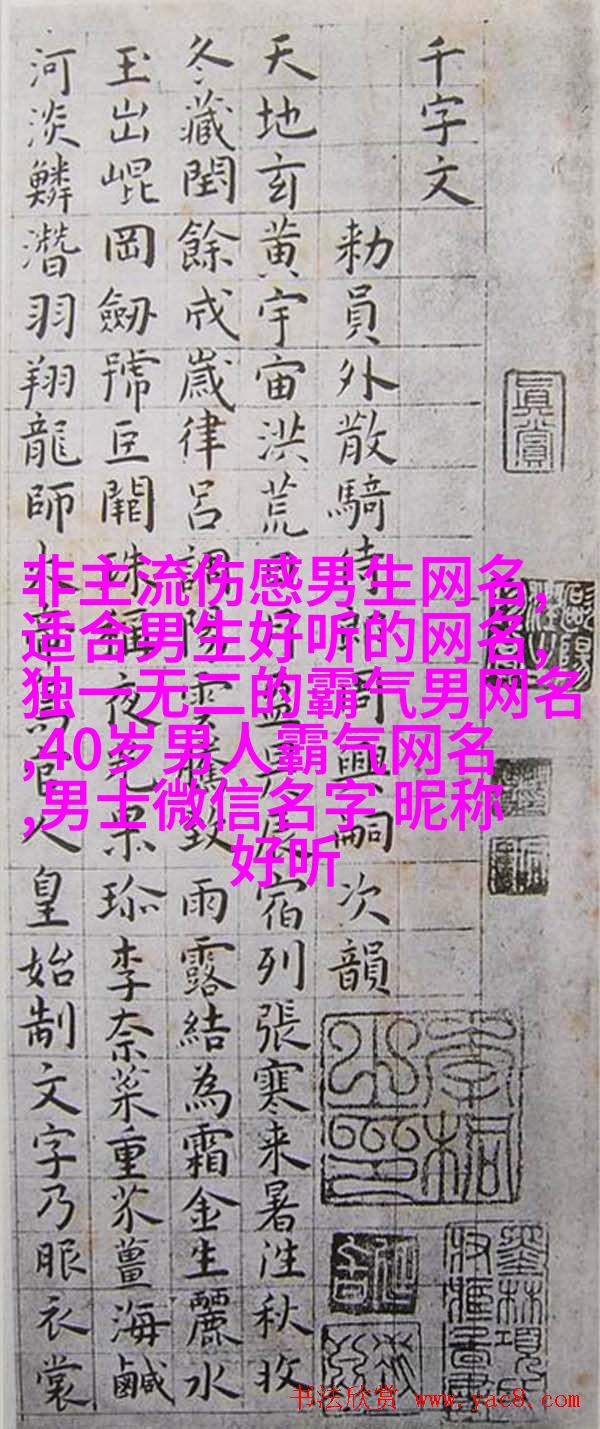 千字文
勑員外散騎侍郎周興嗣次韻
天地玄黃宇宙洪荒日月盈昃辰宿列張寒来暑往秋收
冬藏閏餘成歲律呂調陽雲騰致雨露結為霜金生麗水
玉出崐岡劒號巨闕珠稱夜光果珎李柰菜重芥薑海鹹
河淡鱗潛羽翔龍師火帝鳥官人皇始制文字乃服衣裳
真賞
非主流伤感男生网名,
适合男生好听的网名,
独一无二的霸气男网名
,40岁男人霸气网名
,男士微信名字 昵称
好听
书法欣赏 www.yac8.com